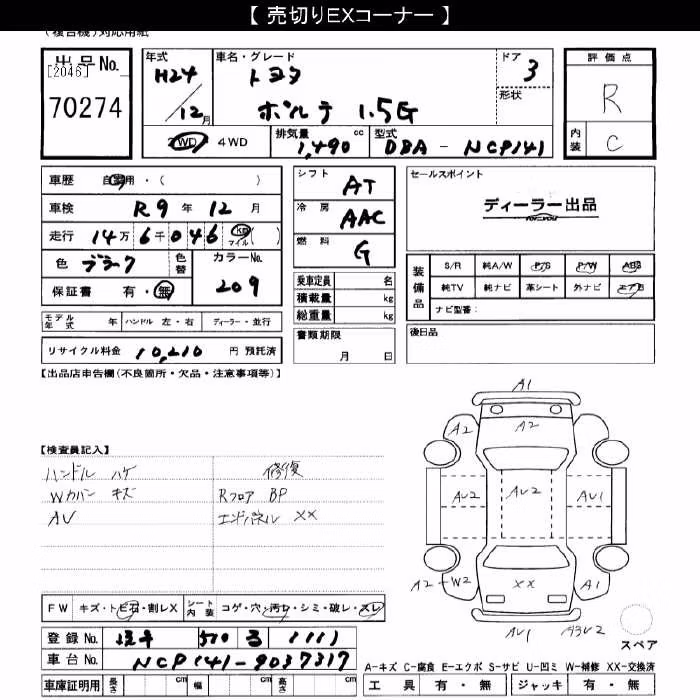 【 売切りEXコーナー 】
(複合機)対応用紙
出品No. [2046]
70274
年式 H24 / 12月
車名・グレード トヨタ
ポルテ 1.5G
ドア 3
形状
評価点 R
内装 C
2WD・4WD
排気量 cc 1,490
型式 DBA - NCP141
車歴 自家用・( )
車検 R9年 12月
走行 14万 6千 046 km マイル ( )
色 ブラック 色替 カラーNo. 209
保証書 有・無
モデル年式 年 ハンドル 左・右 ディーラー・並行
リサイクル料金 10,210 円 預託済
シフト AT
冷房 AAC
燃料 G
乗車定員 名
積載量 kg
総重量 kg
書類期限
月 日
セールスポイント
ディーラー出品
装備品 S/R 純A/W P/S P/W ABS
純TV 純ナビ 革シート 外ナビ エアB
ナビ型番:
後日品
【出品店申告欄(不良箇所・欠品・注意事項等)】
【検査員記入】
ハンドル ハゲ 修復
Wカバー キズ Rフロア BP
AV エンドパネル XX
A1
A2 A2
AU2 AU2 AU1
A2 -W2 XX A1
AU1 A3U2
スペア
FW キズ・トビ石・割レX シート内装 コゲ・穴・汚レ・シミ・破レ・スレ
登録No. 520 る 1111
車台No. NCP141-9037317
車庫証明用 長さ cm 幅 cm 高さ cm
A-キズ C-腐食 E-エクボ S-サビ U-凹ミ W-補修 XX-交換済
工具 有・無 ジャッキ 有・無